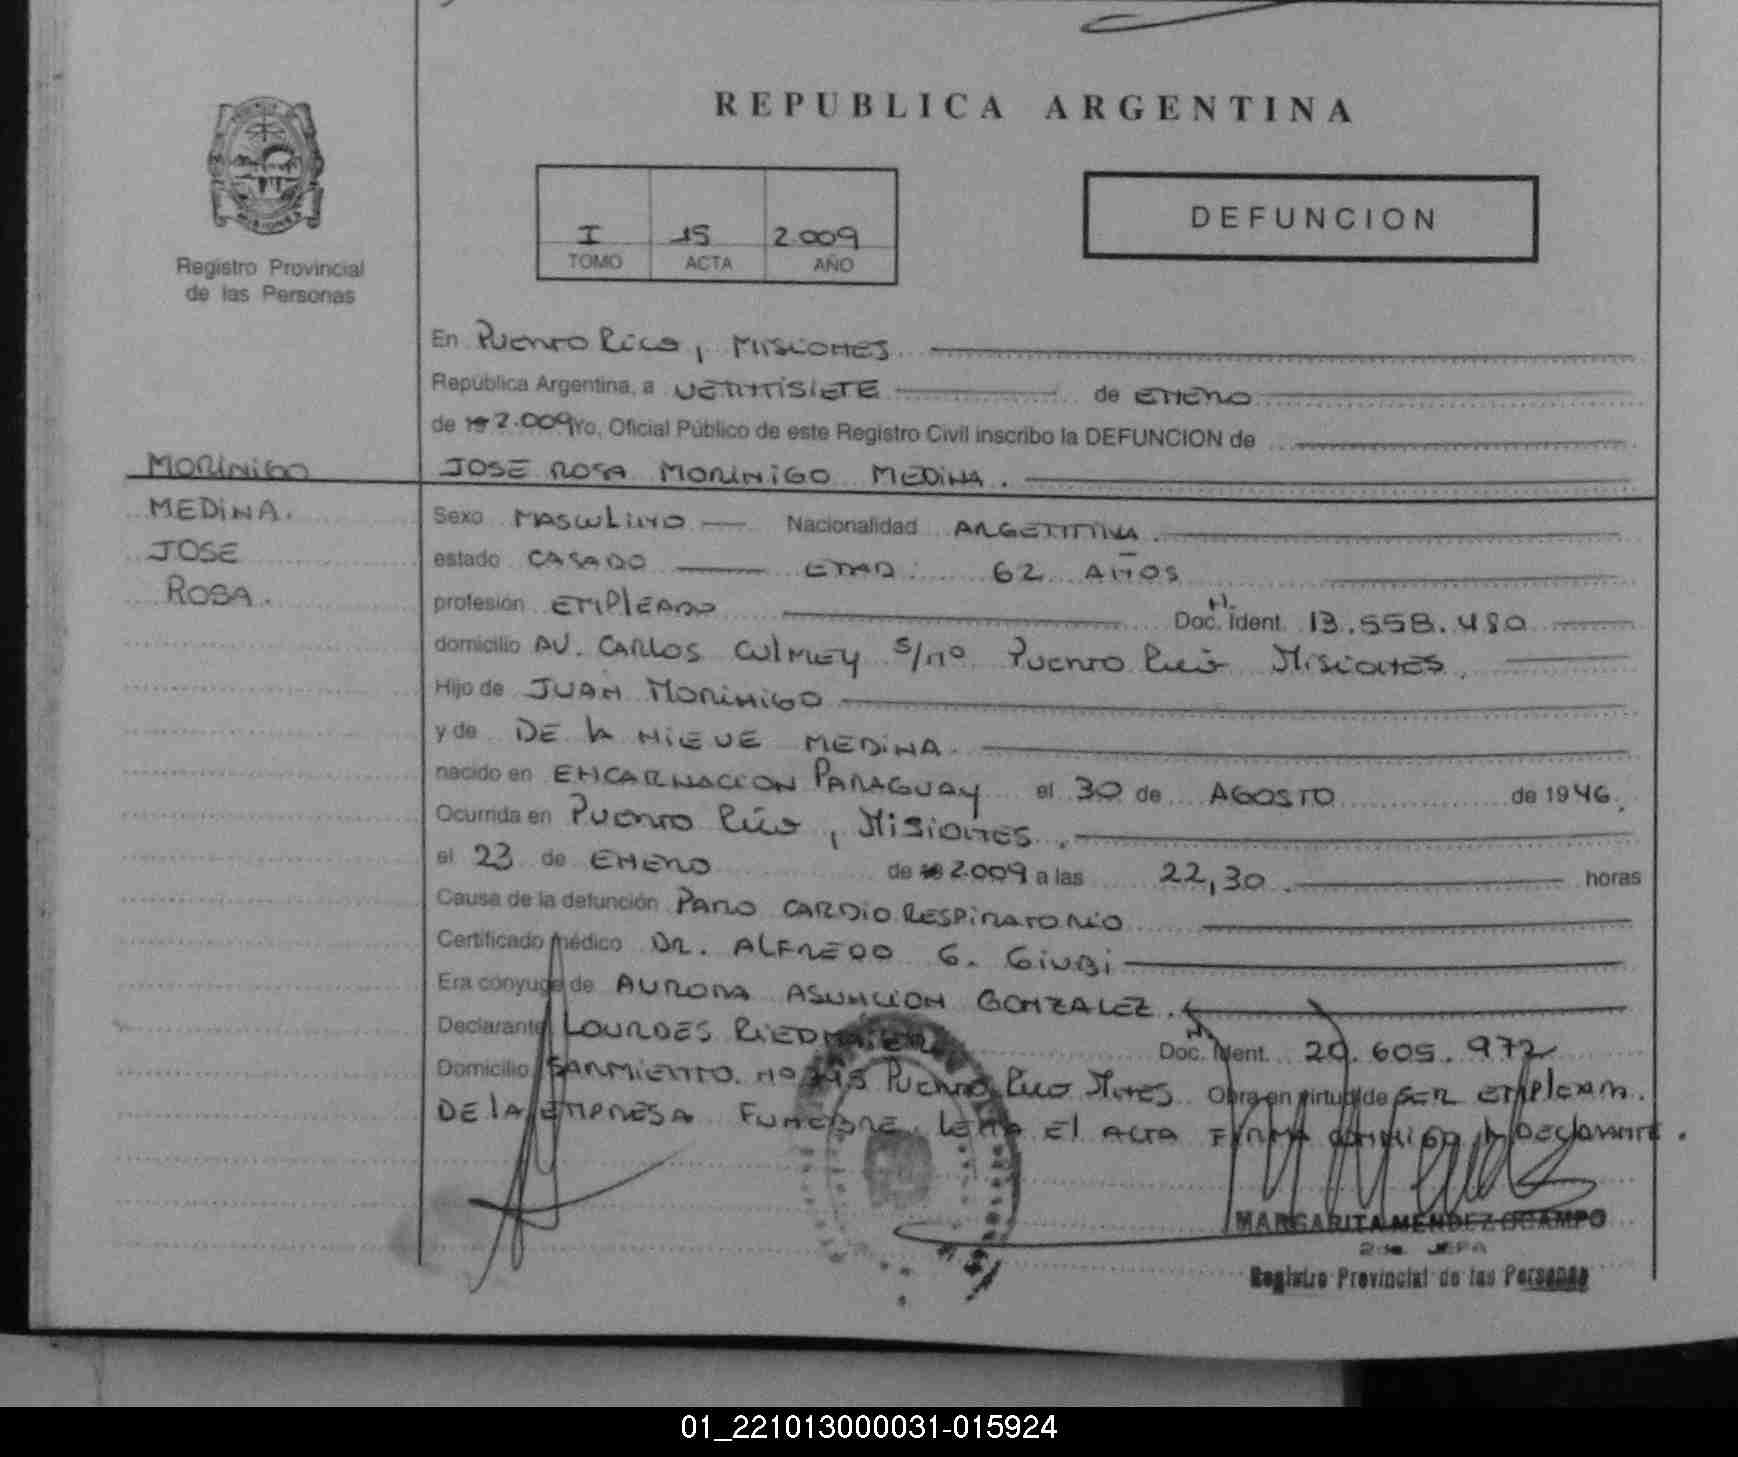 REPUBLICA ARGENTINA
DEFUNCION
I 15 2.009
TOMO ACTA AÑO
Registro Provincial
de las Personas
MORINIGO
MEDINA.
JOSE
ROSA.
En Puerto Rico, MISIONES
República Argentina, a VEINTISIETE de ENERO
de 19 2.009 Yo, Oficial Público de este Registro Civil inscribo la DEFUNCION de
JOSE ROSA MORINIGO MEDINA.
Sexo MASCULINO Nacionalidad ARGENTINA.
estado CASADO EDAD: 62 AÑOS
profesión EMPLEADO Doc. N. Ident. 13.558.480
domicilio AV. CARLOS CULMEY S/Nº Puerto Rico Misiones.
Hijo de JUAN MORINIGO
y de DE la NIEVE MEDINA.
nacido en ENCARNACION PARAGUAY el 30 de AGOSTO de 1946.
Ocurrida en Puerto Rico, Misiones.
el 23 de ENERO de 19 2.009 a las 22,30. horas
Causa de la defunción PARO CARDIO RESPIRATORIO
Certificado médico DR. ALFREDO G. GIUBI
Era cónyuge de AURORA ASUNCION GONZALEZ.
Declarante LOURDES Doc. N. Ident. 20.605.972
Domicilio SARMIENTO Nº Puerto Rico Mnes. Obra en virtud de SER EMPLEADA.
DE lA EMPRESA FUNEBRE. LEIDA El ACTA FIRMA CONMIGO lA DECLARANTE.
MARGARITA MENDEZ OCAMPO
2da. JEFA
Registro Provincial de las Personas
01_221013000031-015924